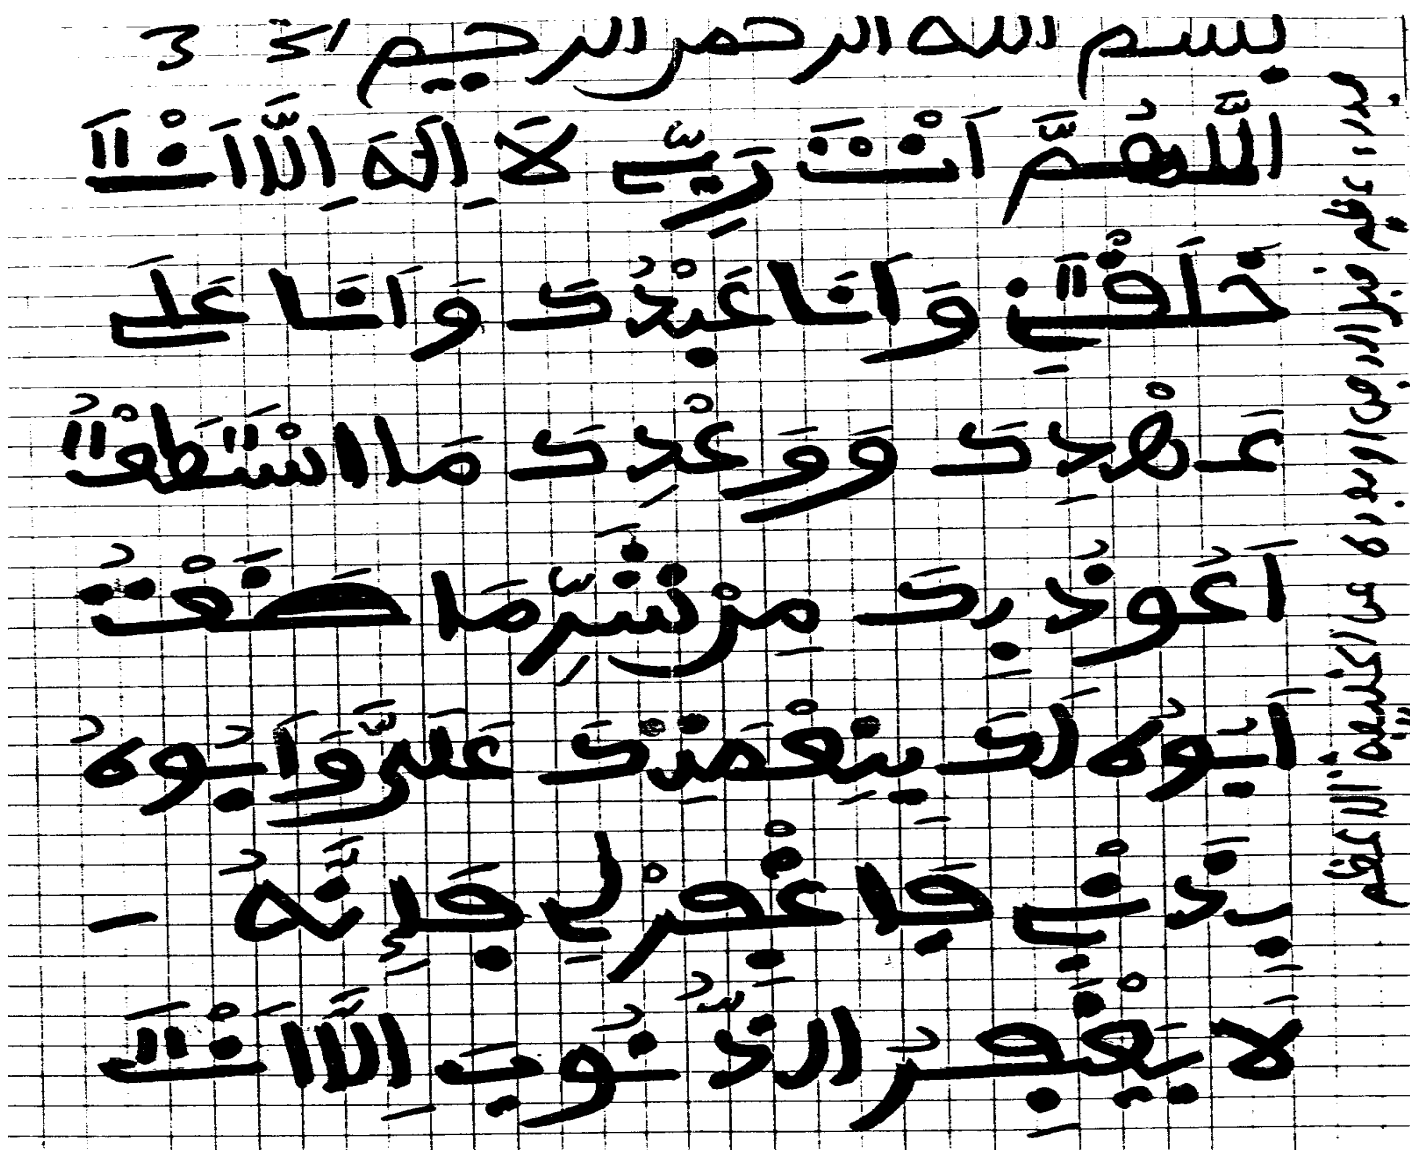 بسم الله الرحمن الرحيم
اَللّٰهُمَّ اَنْتَ رَبِّي لَا اِلَهَ اِلَّا اَنْتَ
خَلَقْتَنِي وَاَنَا عَبْدُكَ وَاَنَا عَلَى
عَهْدِكَ وَوَعْدِكَ مَا اسْتَطَعْتُ
اَعُوذُ بِكَ مِنْ شَرِّ مَا صَنَعْتُ
اَبُوءُ لَكَ بِنِعْمَتِكَ عَلَيَّ وَاَبُوءُ
بِذَنْبِي فَاغْفِرْ لِي فَإِنَّهُ
لَا يَغْفِرُ الذُّنُوبَ اِلَّا اَنْتَ